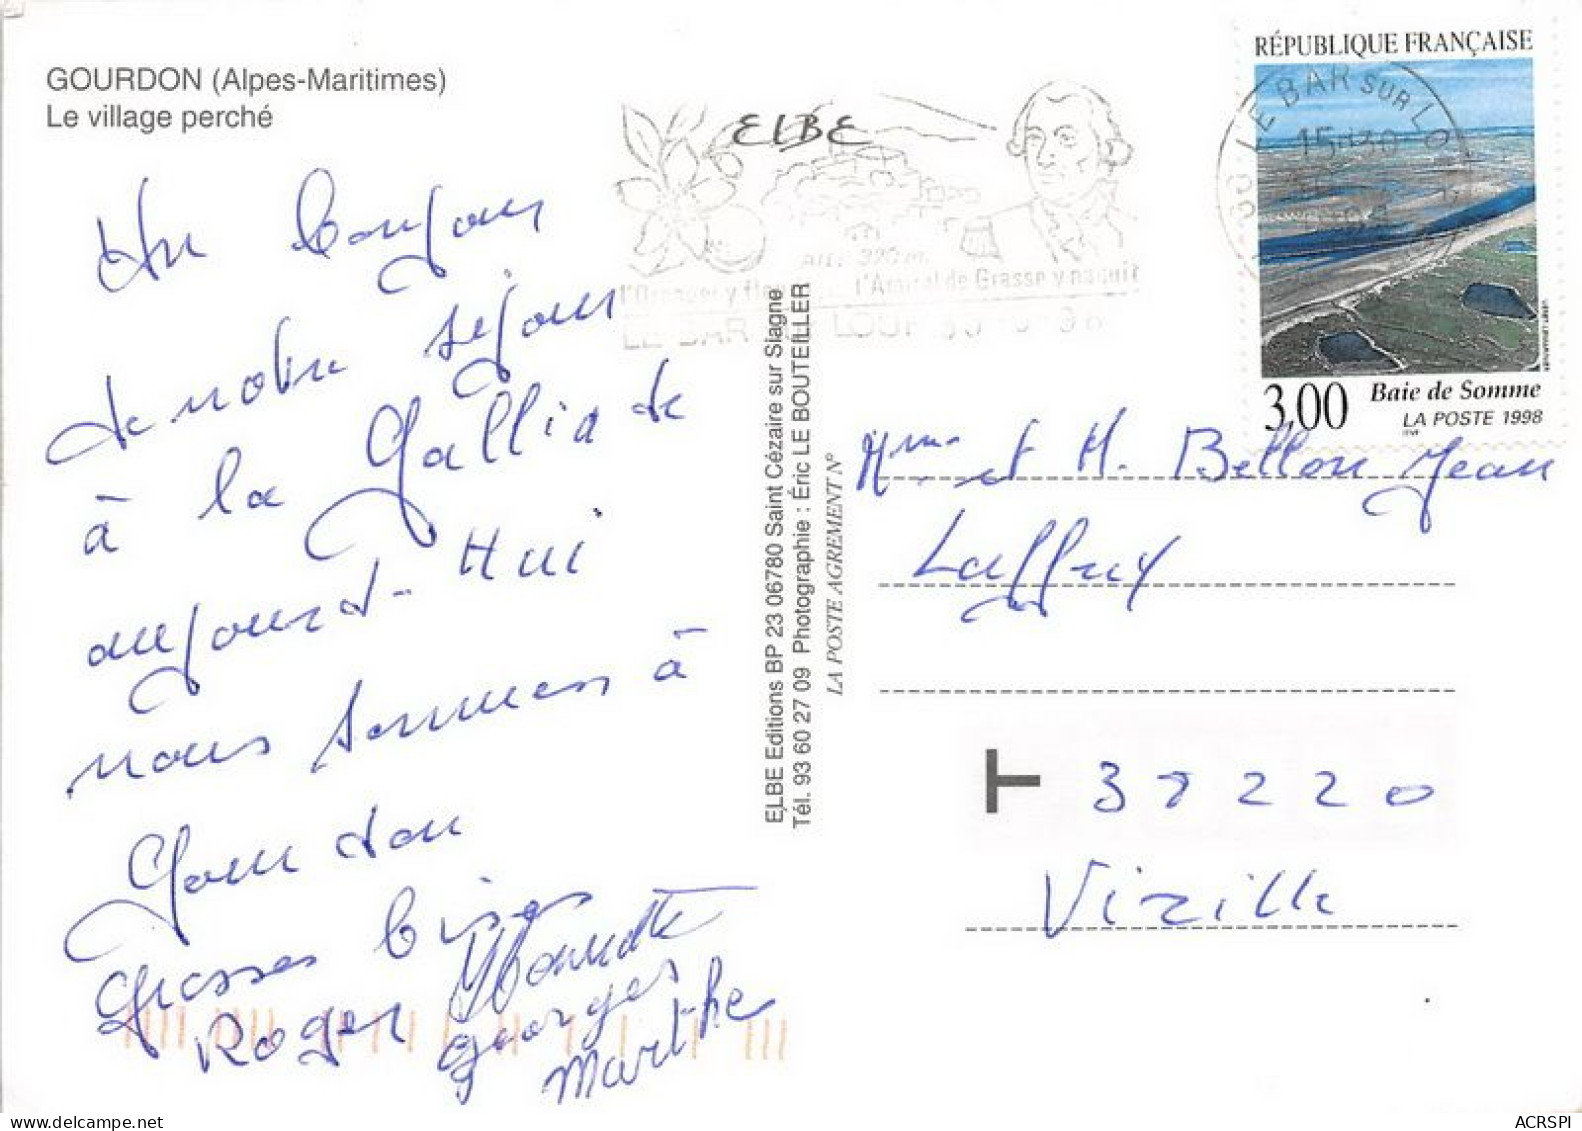 GOURDON (Alpes-Maritimes)
Le village perché
Un bonjour
de notre séjour
à la Gallia de
aujourd-Hui
nous sommes à
Gourdon
grosses bises
Roger
Georges
Marthe
ELBE
ALT: 320 m.
l'Amiral de Grasse y naquit
LE BAR LOUP
ELBE Editions BP 23 06780 Saint Cézaire sur Siagne
Tél. 93 60 27 09 Photographie : Éric LE BOUTEILLER
LA POSTE AGREMENT N°
RÉPUBLIQUE FRANÇAISE
LE BAR SUR LO
3,00
Baie de Somme
LA POSTE 1998
Mme et M. Bellon Jean
Laffrey
T 38220
Vizille
ACRSPI